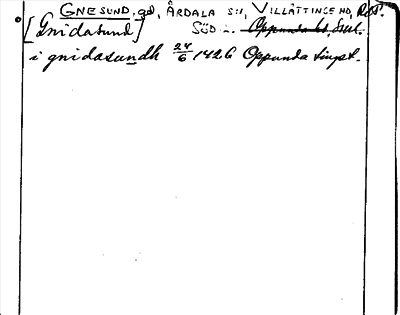 GNESUND, gd, ÅRDALA S:N, VILLÅTTINGE HD,
[Gnidasund] SÖD
i gnidasundh 24/6 1426 Oppunda tingst.